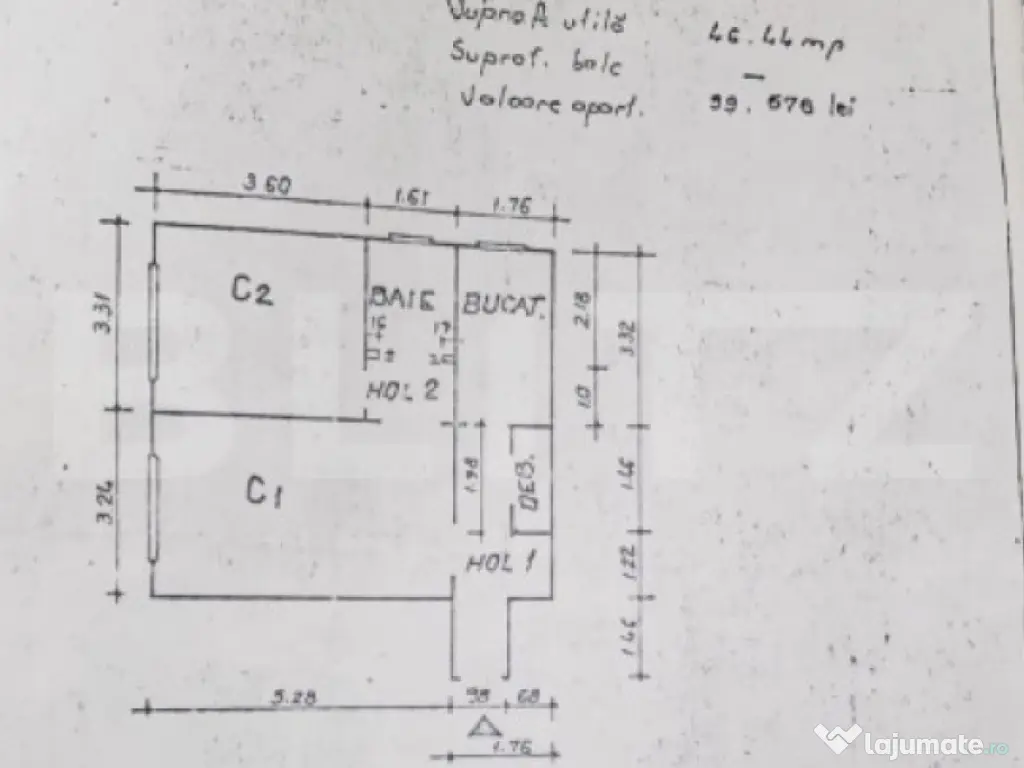 Supraf utilă 46.44 mp
Supraf. balc —
Valoare apart. 99.676 lei
3.60 1.61 1.76
C2 BAIE BUCAT.
3.31
2.18
3.32
HOL 2
1.0
C1
3.24
1.98
DEB.
1.46
HOL 1
1.22
1.46
5.28 98 68
1.76
BLITZ
lajumate.ro